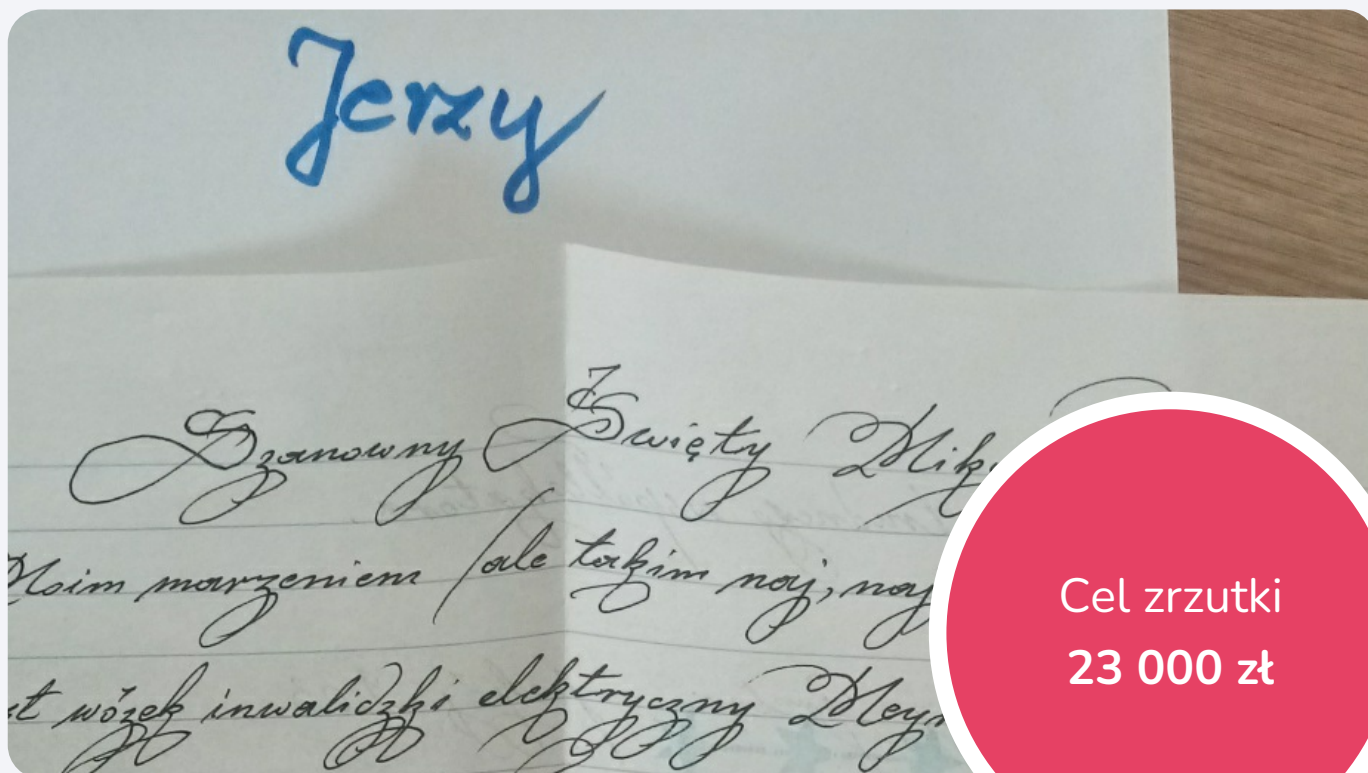 Jerzy
Szanowny Święty Mik
Moim marzeniem (ale takim naj, naj
t wózek inwalidzki elektryczny Mey
Cel zrzutki
23 000 zł